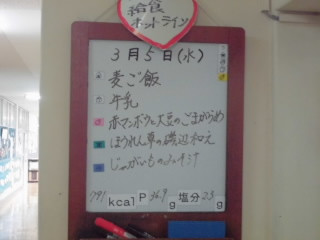 給食
ホットライン
3月5日(水)
麦ご飯
牛乳
赤マンボウと大豆のごまがらめ
ほうれん草の磯辺和え
じゃがいものみそ汁
791 kcal P 36.9 g 塩分 2.3 g